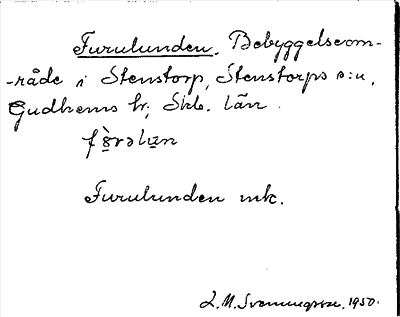 Furulunden. Bebyggelseom-
-råde i Stenstorp, Stenstorps s:n,
Gudhems hr, Skb. län.
Furulunden mk.
L. M. Svenungsson. 1950.